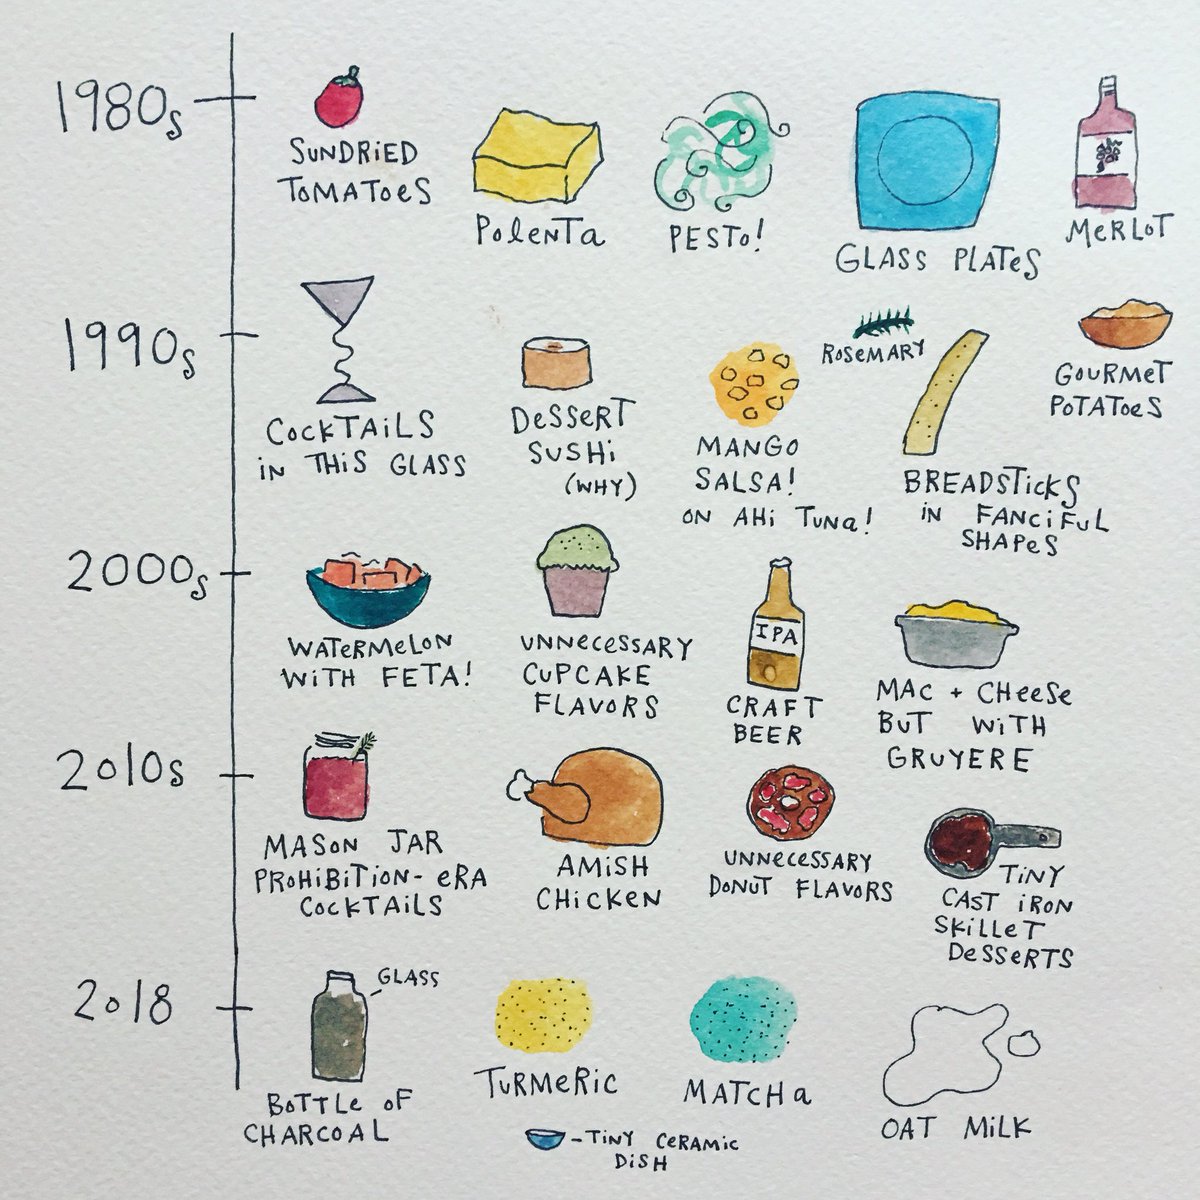 1980s
SUNDRIED
TOMATOES
POLENTA
PESTO!
GLASS PLATES
MERLOT
1990s
COCKTAILS
IN THIS GLASS
DESSERT
SUSHI
(WHY)
MANGO
SALSA!
ON AHI TUNA!
ROSEMARY
BREADSTICKS
IN FANCIFUL
SHAPES
GOURMET
POTATOES
2000s
WATERMELON
WITH FETA!
UNNECESSARY
CUPCAKE
FLAVORS
IPA
CRAFT
BEER
MAC + CHEESE
BUT WITH
GRUYERE
2010s
MASON JAR
PROHIBITION-ERA
COCKTAILS
AMISH
CHICKEN
UNNECESSARY
DONUT FLAVORS
TINY
CAST IRON
SKILLET
DESSERTS
2018
GLASS
BOTTLE OF
CHARCOAL
TURMERIC
MATCHA
OAT MILK
-TINY CERAMIC
DISH